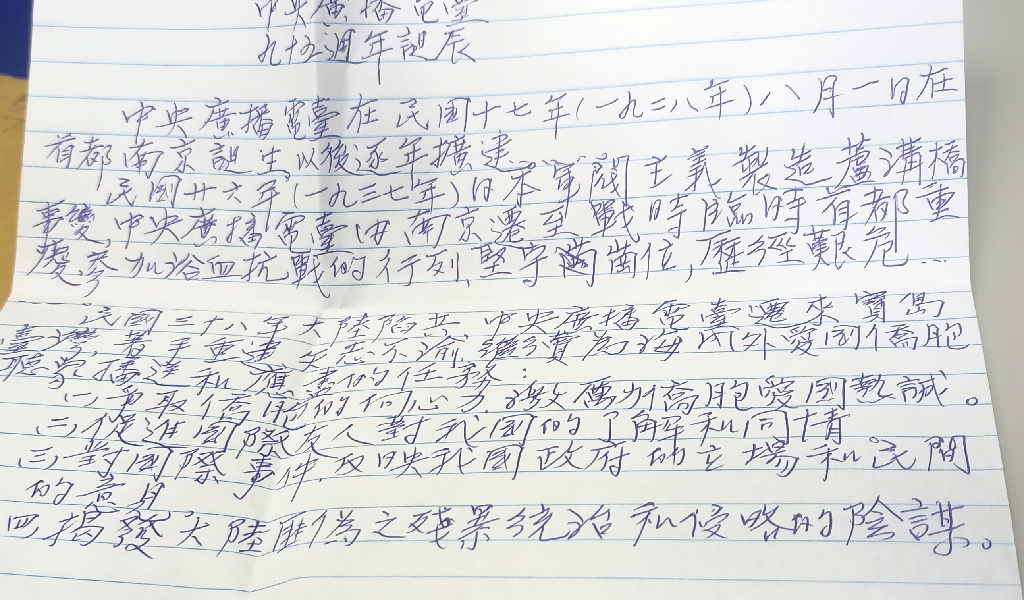 中央廣播電臺
九十五週年誕辰
中央廣播電臺在民国十七年(一九二八年)八月一日在
首都南京誕生,以後逐年擴建.
民国廿六年(一九三七年)日本軍閥主義製造蘆溝橋
事變,中央廣播電臺由南京遷至戰時臨時首都重
慶.參加浴血抗戰的行列,堅守崗位,歷經艱危…
民國三十八年大陸陷共.中央廣播電臺遷來寶島
臺灣,著手重建 矢志不渝.繼續為海內外愛国僑胞
聽眾播送和應盡的任務:
(一)爭取僑胞的向心力激勵僑胞愛国熱誠。
(二)促進國際友人對我国的了解和同情
(三)對國際事件.反映我國政府的立場和民間
的意見
四.揭發大陸匪偽之殘暴統治和侵略的陰謀。